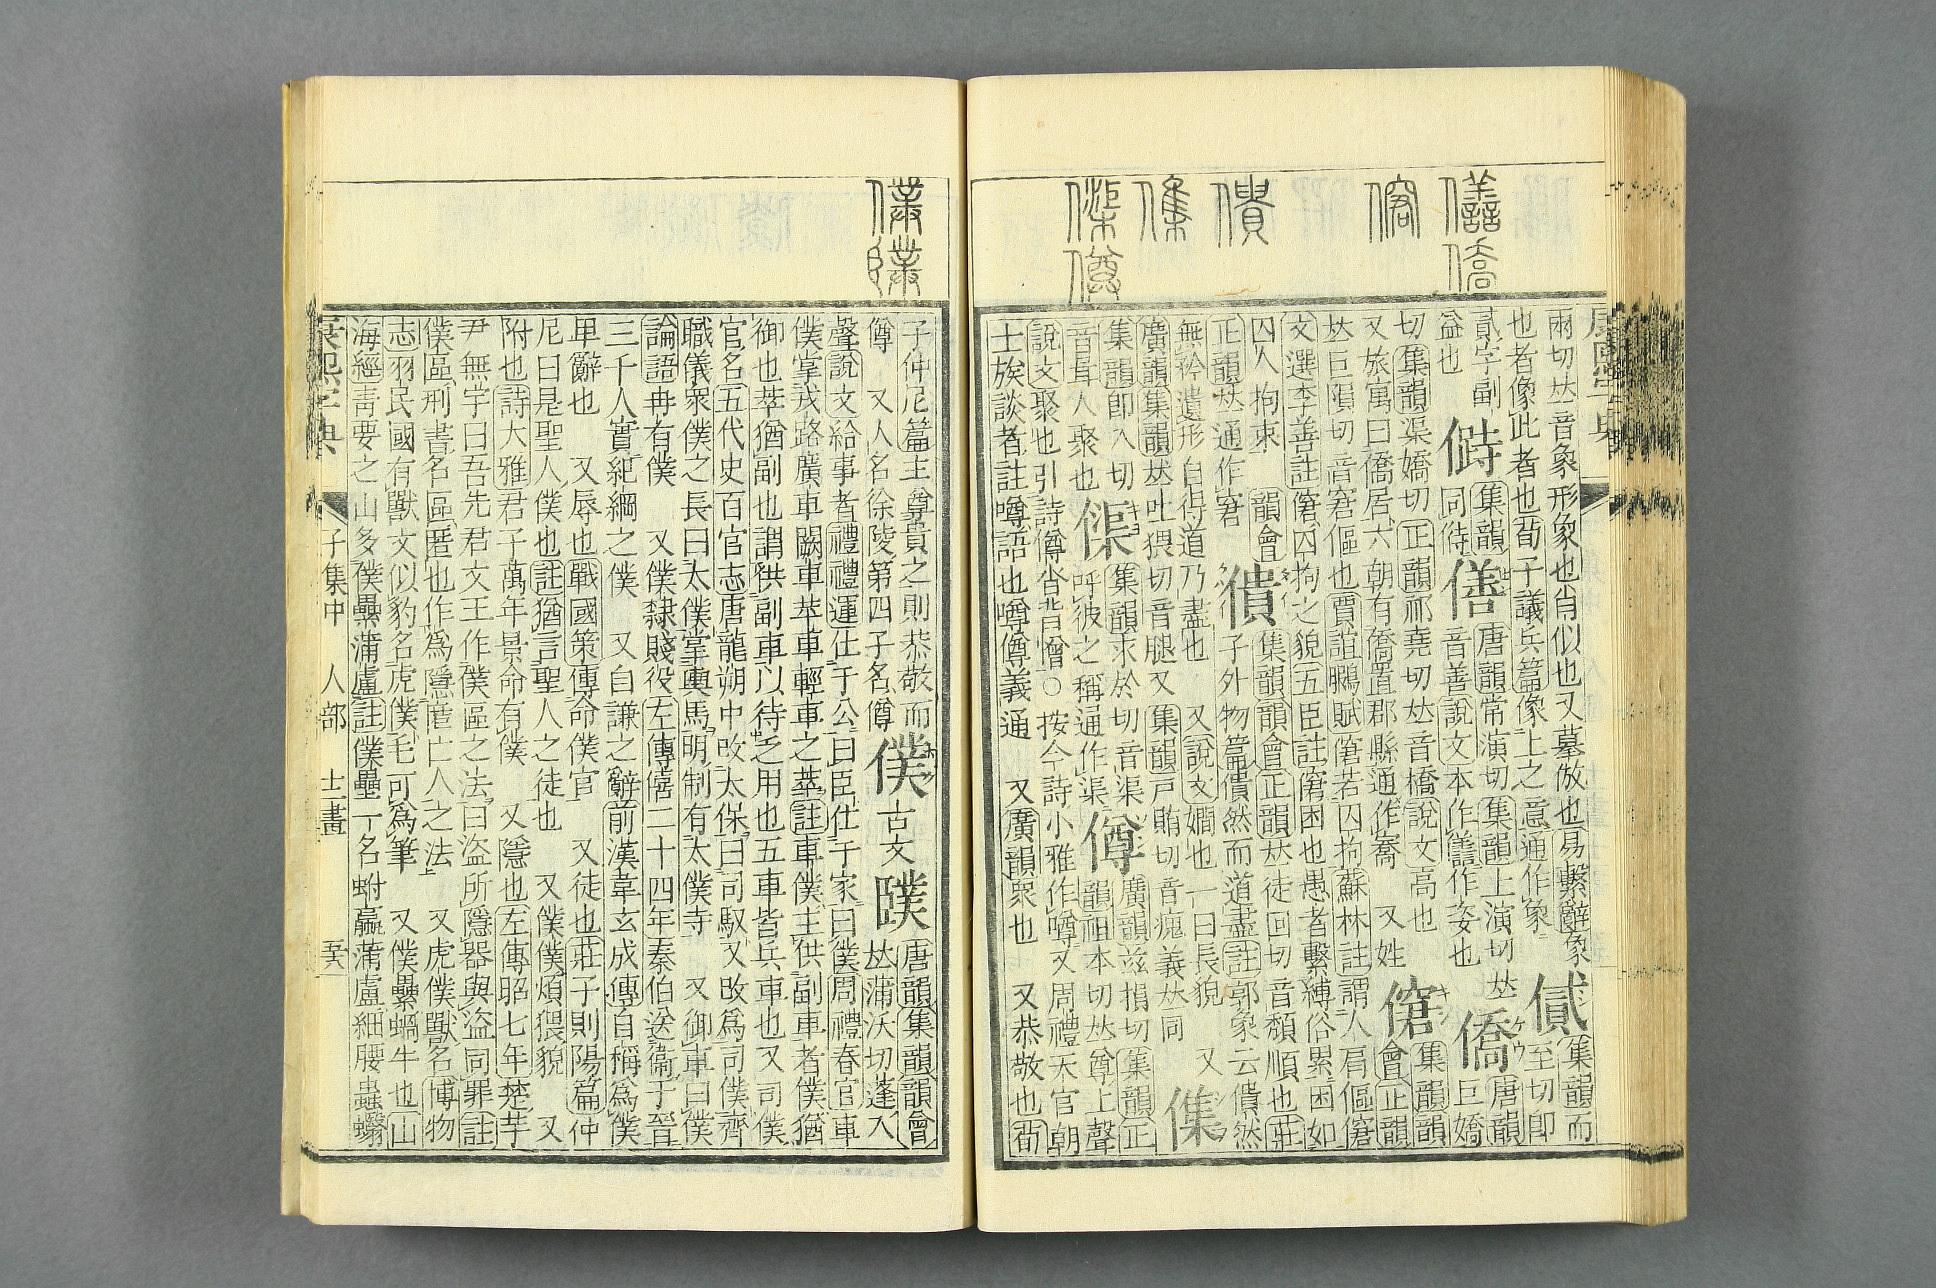 兩切𠀤音象形象也肖似也又摹倣也易繫辭象
也者像此者也荀子議兵篇像上之意通作象
集韻而
至切卽
貳字副
益也
集韻
同待
僐
唐韻常演切集韻上演切𠀤
音善說文本作譱作姿也
僑
唐韻
巨嬌
切集韻渠嬌切正韻祁堯切𠀤音橋說文高也
又旅寓曰僑居六朝有僑置郡縣通作 又姓
僒
集韻韻
會正韻
𠀤巨隕切音窘傴也賈誼鵩賦僒若囚拘蘇林註謂人肩傴窘
文選李善註僒囚拘之貌五臣註窘困也愚者繫縛俗累困如
囚人拘束
正韻𠀤通作窘
韻會
僓
集韻韻會正韻𠀤徒回切音頹順也莊
子外物篇僓然而道盡註郭象云僓然
無矜遺形自得道乃盡也 又說文嫺也一曰長貌 又
廣韻集韻𠀤吐猥切音腿又集韻戶賄切音瘣義𠀤同
集韻卽入切
音咠人聚也
集韻求於切音渠
呼彼之稱通作渠
僔
廣韻兹損切集韻正
韻祖本切𠀤尊上聲
說文聚也引詩僔沓背憎○按今詩小雅作噂又周禮天官朝
士族談者註噂語也噂僔義通 又廣韻衆也 又恭敬也荀
子仲尼篇主尊貴之則恭敬而
僔 又人名徐陵第四子名僔
僕
古文
𨽻
唐韻集韻韻會
𠀤蒲沃切蓬入
聲說文給事者禮禮運仕于公曰臣仕于家曰僕周禮春官車
僕掌戎路廣車闕車苹車輕車之萃註車僕主供副車者僕猶
御也萃猶副也謂供副車以待乏用也五車皆兵車也又司僕
官名五代史百官志唐龍朔中改太保曰司馭又改爲司僕齊
職儀衆僕之長曰太僕掌輿馬明制有太僕寺 又御車曰僕
論語冉有僕 又僕隸賤役左傳僖二十四年秦伯送衞于晉
三千人實紀綱之僕 又自謙之辭前漢韋玄成傳自稱爲僕
𤰞辭也 又辱也戰國策傳命僕官 又徒也莊子則陽篇仲
尼曰是聖人僕也註猶言聖人之徒也 又僕僕煩猥貌 又
附也詩大雅君子萬年景命有僕 又隱也左傳昭七年楚芋
尹無宇曰吾先君文王作僕區之法曰盜所隱器與盜同罪註
僕區刑書名區匿也作爲隱匿亡人之法 又虎僕獸名博物
志羽民國有獸文似豹名虎僕毛可爲筆 又僕纍蝸牛也山
海經靑要之山多僕纍蒲盧註僕壘一名蚹蠃蒲盧細腰蟲螉
康熙字典 子集中 人部 十二畫
康熙字典